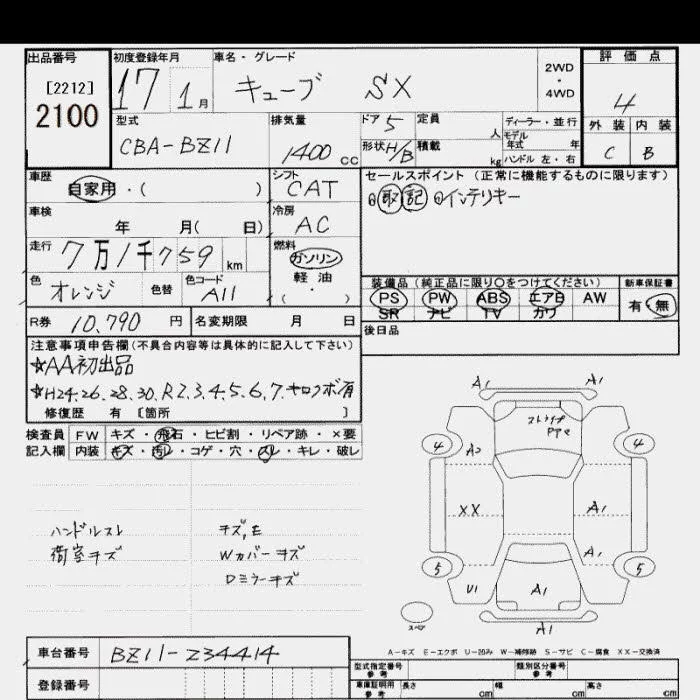 出品番号 初度登録年月 車名・グレード 評価点
[2212] 2100 17 1月 キューブ SX 2WD・4WD 4
型式 排気量 ドア 5 定員 人 ディーラー・並行 外装 内装
CBA-BZ11 1400cc 形状 H/B 積載 kg モデル年式 年 ハンドル 左・右 C B
車歴 シフト セールスポイント(正常に機能するものに限ります)
自家用・( ) CAT 取 記 インテリキー
車検 年 月( 日) 冷房 AC
走行 7万1千759km 燃料 ガソリン 軽油・( )
色 オレンジ 色替 色コード A11
装備品(純正品に限り○をつけてください) 新車保証書
PS PW ABS エアB AW 有・無
SR ナビ TV カワ
R券 10,790円 名変期限 月 日 後日品
注意事項申告欄(不具合内容等は具体的に記入して下さい)
☆AA初出品
☆H24.26.28.30.R2.3.4.5.6.7.キロクボ有
修復歴 有 [箇所 ]
検査員 FW キズ・飛石・ヒビ割・リペア跡・×要
記入欄 内装 キズ・汚レ・コゲ・穴・スレ・キレ・破レ
ハンドルスレ キズ,E
荷室キズ Wカバーキズ
Dミラーキズ
A1 A1
4 A2 4
XX A1
A1
5 U1 A1 5
スペア A1
A-キズ E-エクボ U-凹み W-補修跡 S-サビ C-腐食 XX-交換済
車台番号 BZ11-234414
登録番号
型式指定番号 参考 類別区分番号 参考
車庫証明用 参考 長さ cm 幅 cm 高さ cm